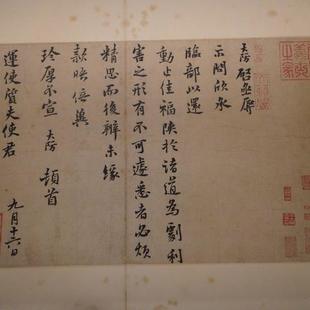 大防啟亟辱
示問欣承
臨部以還
動止佳福陝於諸道為劇利
害之形有不可遽悉者必煩
精思而後辨未緣
款晤倍冀
珍厚不宣 大防 頓首
運使質夫使君 九月十六日